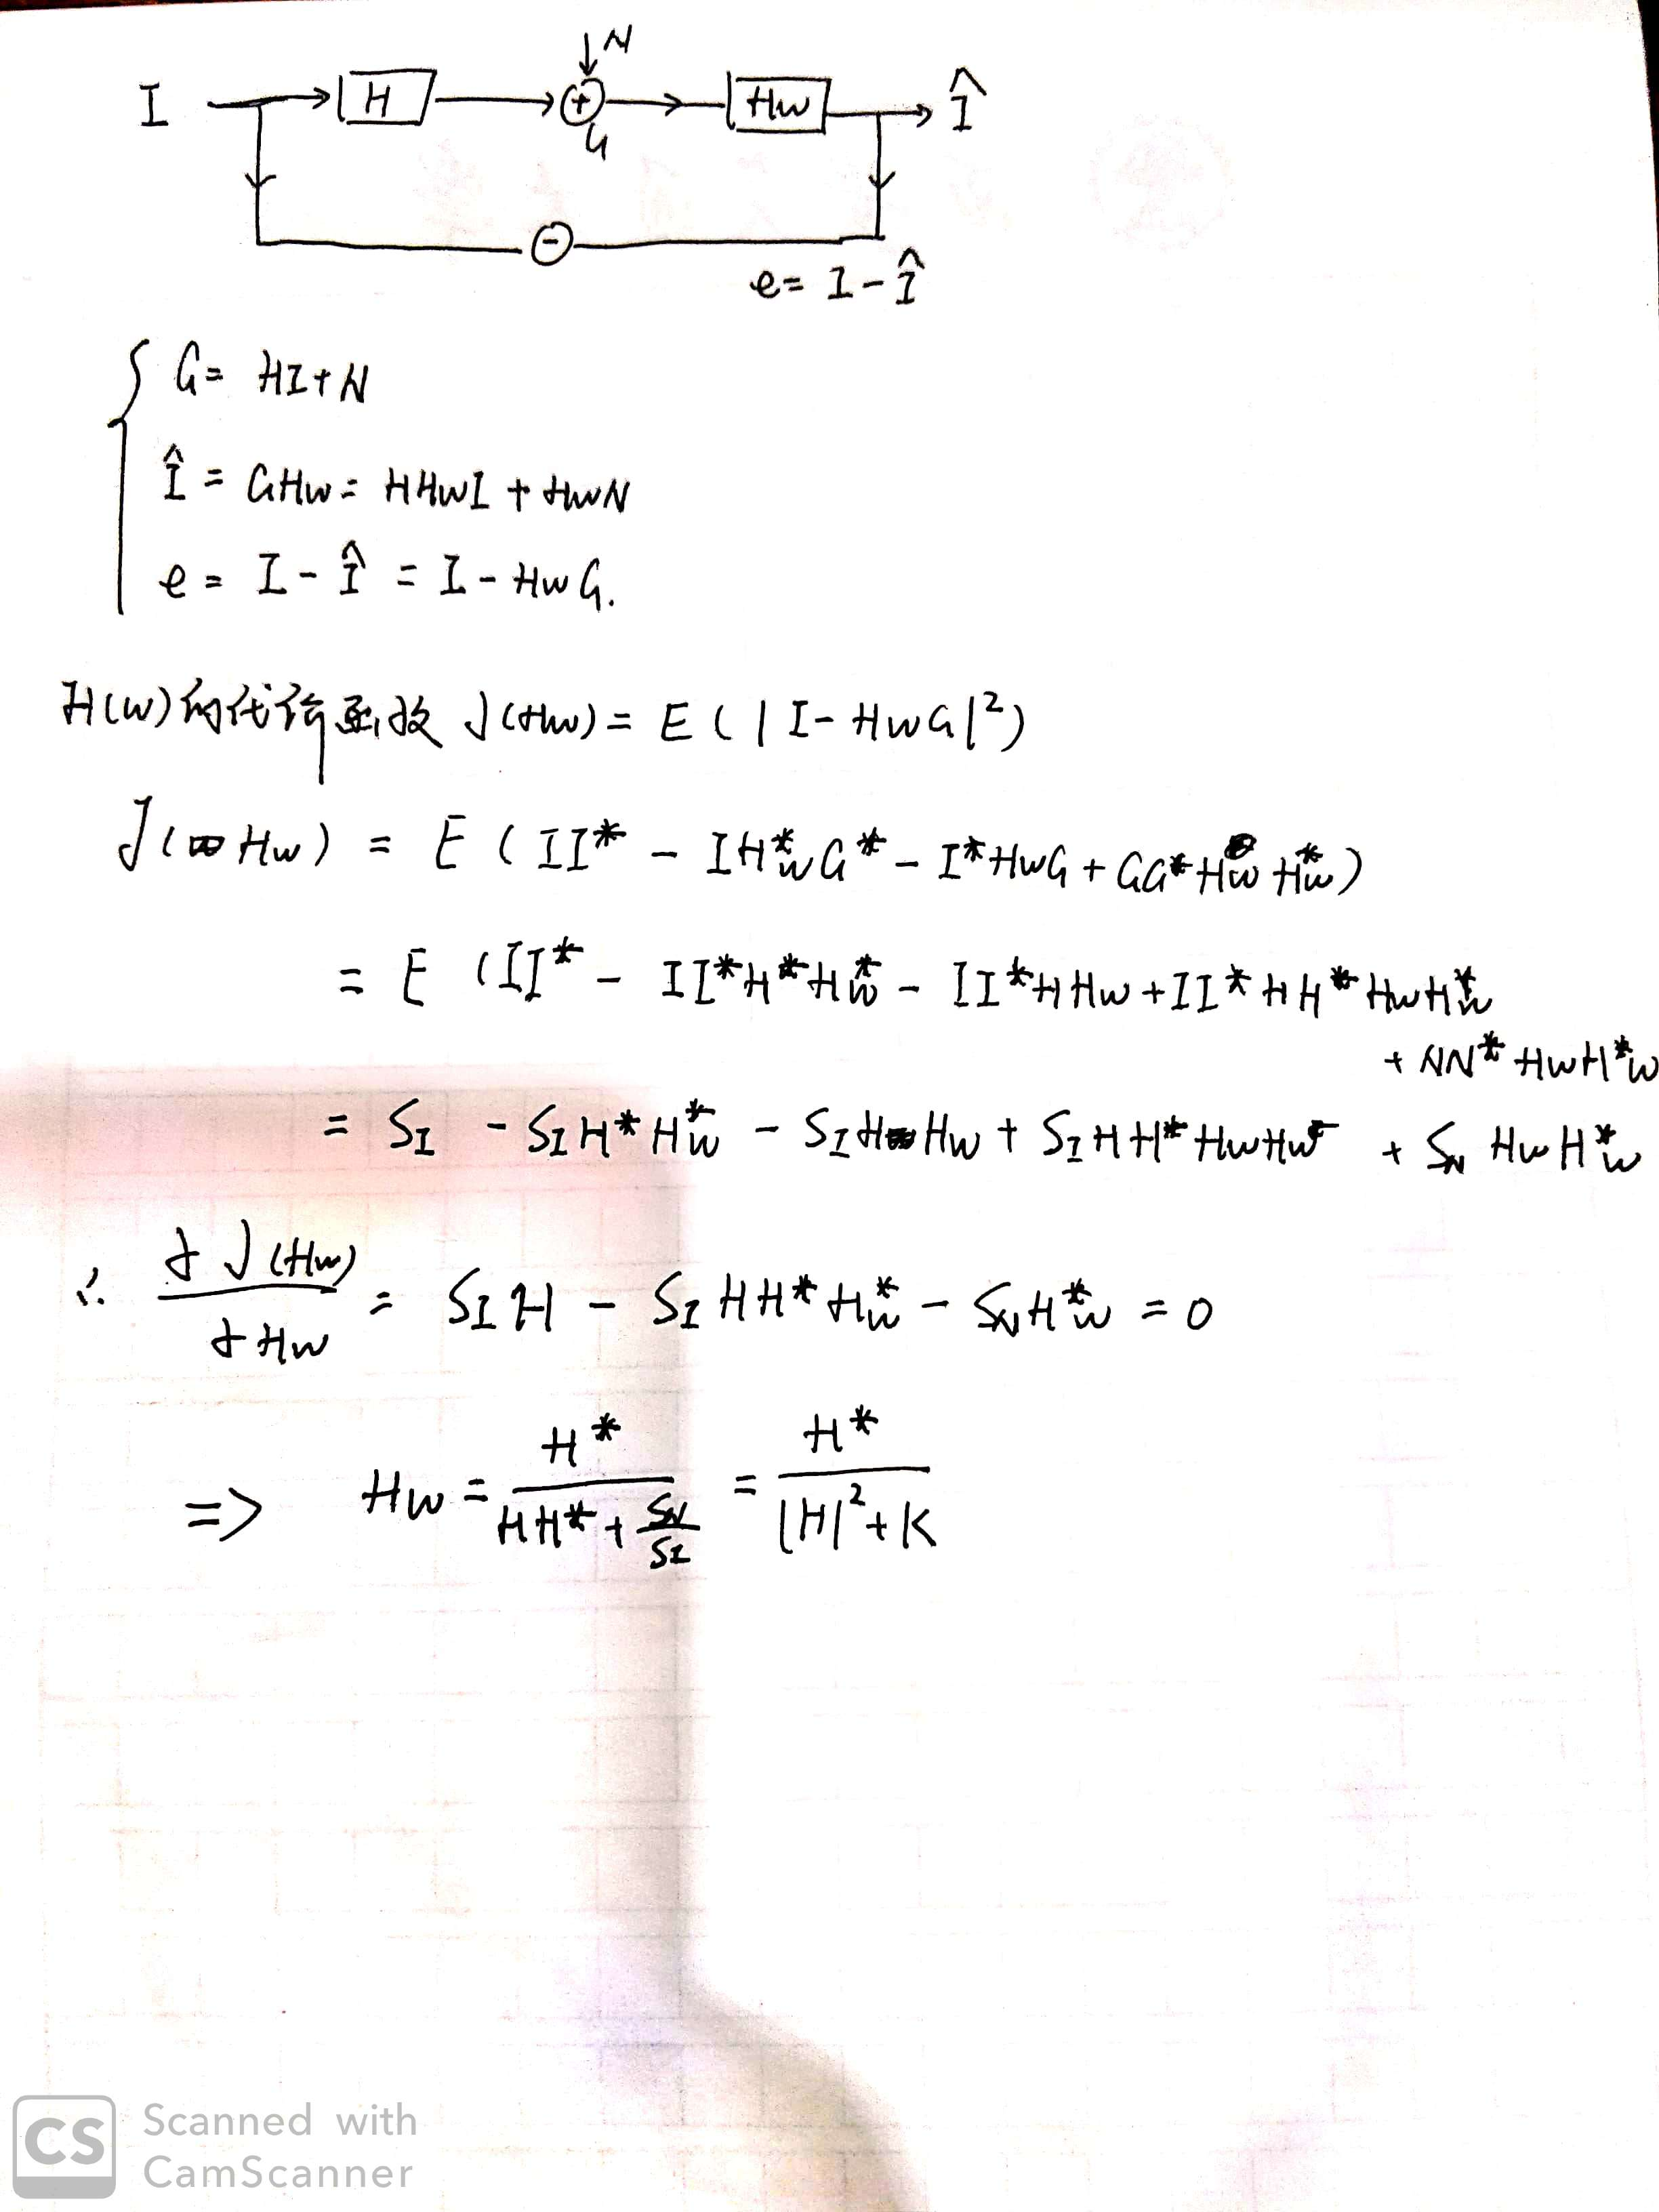 ↓N
I → H → ⊕ → Hw → Î
G
⊖
e = I - Î
{ G = HI + N
Î = GHw = HHwI + HwN
e = I - Î = I - HwG.
H(w)的代价函数 J(Hw) = E(|I - HwG|²)
J(Hw) = E(II* - IH*wG* - I*HwG + GG*HwH*w)
= E(II* - II*H*H*w - II*HHw + II*HH*HwH*w
+ NN*HwH*w
= S_I - S_I H*H*w - S_I HHw + S_I HH*HwHw* + S_N HwH*w
∴ ∂J(Hw)/∂Hw = S_I H - S_I HH*H*w - S_N H*w = 0
=> Hw = H*/(HH* + S_N/S_I) = H*/(|H|² + K)
CS Scanned with
CamScanner